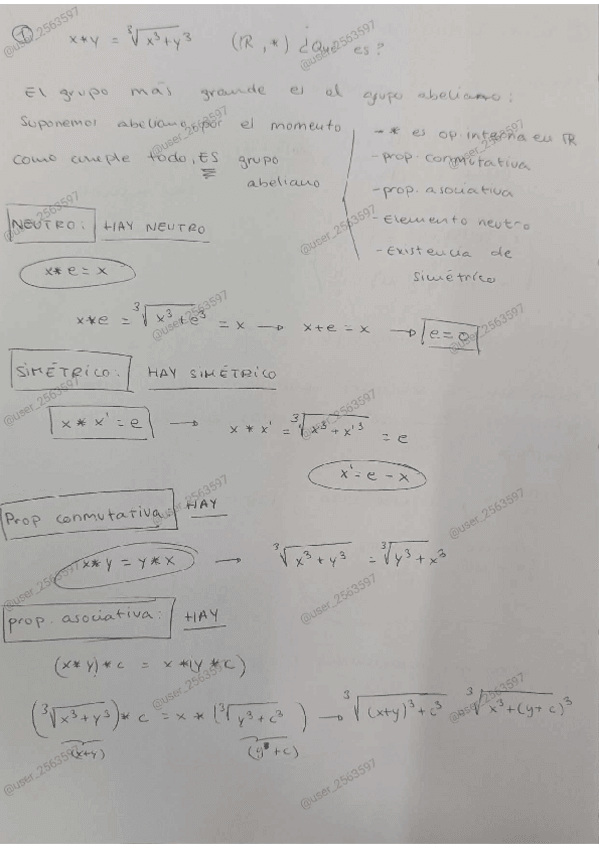 ① x*y = ∛(x³+y³) (ℝ, *) ¿Qué es?
El grupo más grande es el grupo abeliano:
Suponemos abeliano por el momento
como cumple todo, ES grupo
abeliano
- * es op. interna en ℝ
- prop. conmutativa
- prop. asociativa
- Elemento neutro
- Existencia de
simétrico
NEUTRO: HAY NEUTRO
x*e = x
x*e = ∛(x³+e³) = x → x+e = x → e=0
SIMÉTRICO: HAY SIMÉTRICO
x * x' = e → x * x' = ∛(x³+x'³) = e
x' = e - x
Prop conmutativa HAY
x*y = y*x → ∛(x³+y³) = ∛(y³+x³)
prop. asociativa: HAY
(x*y)*c = x*(y*c)
(∛(x³+y³))*c = x*(∛(y³+c³)) → ∛((x+y)³+c³) ∛(x³+(y+c)³)
(x+y) (y+c)
@user_2563597